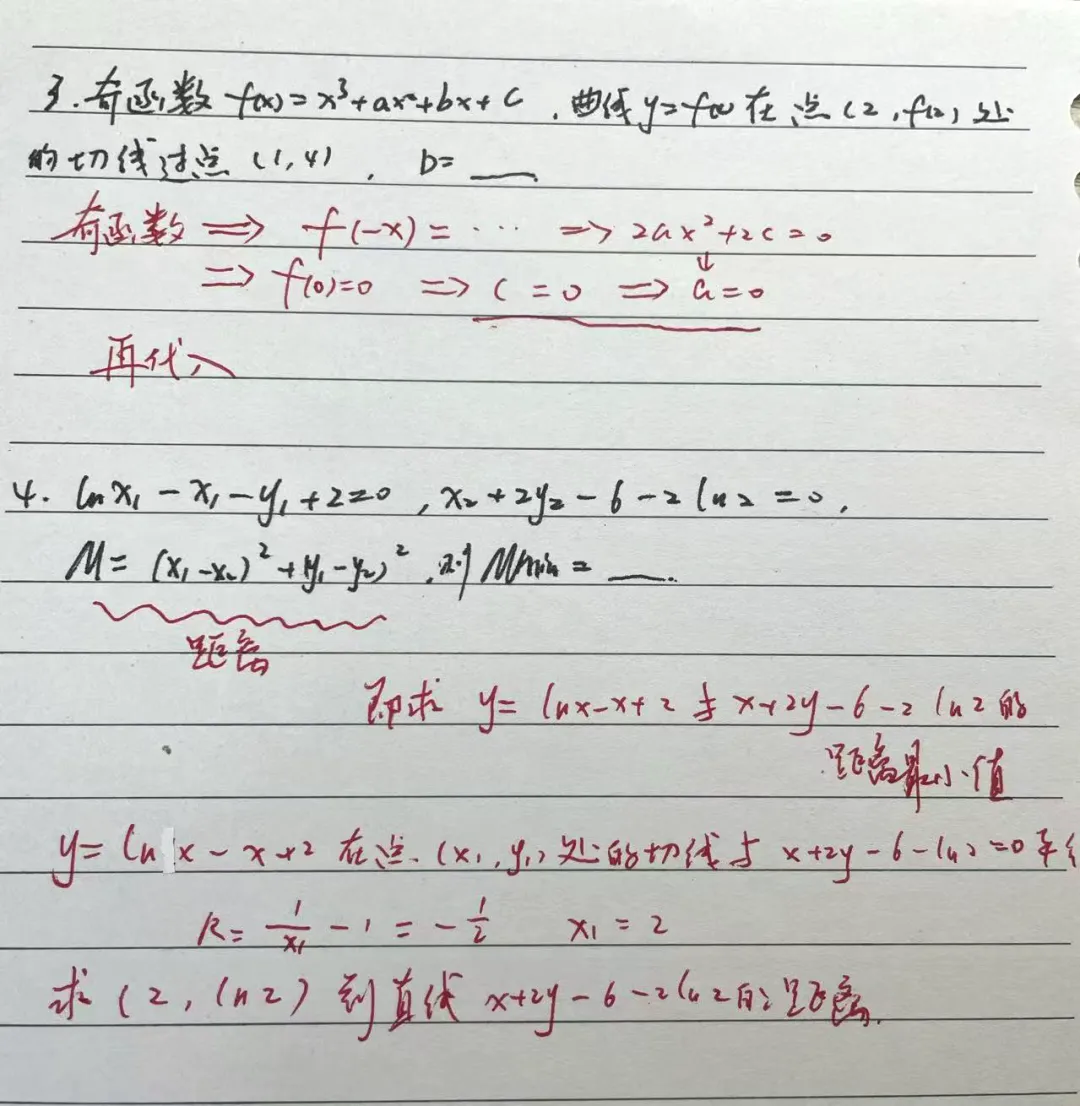 3. 奇函数 f(x)=x³+ax²+bx+c ,曲线y=f(x) 在点(2,f(2))处
的切线过点 (1,4) , b= ___
奇函数 ⇒ f(-x)= ··· ⇒ 2ax²+2c=0
⇒ f(0)=0 ⇒ c=0 ⇒ a=0
再代入
4. lnx₁-x₁-y₁+2=0 , x₂+2y₂-6-2ln2=0,
M= (x₁-x₂)²+(y₁-y₂)² ,则Mmin= ___.
距离
即求 y=lnx-x+2 与 x+2y-6-2ln2的
距离最小值
y=ln x-x+2 在点 (x₁,y₁)处的切线与 x+2y-6-ln2=0平行
k= 1/x₁ -1 = -1/2 x₁=2
求(2,ln2)到直线 x+2y-6-2ln2的距离.